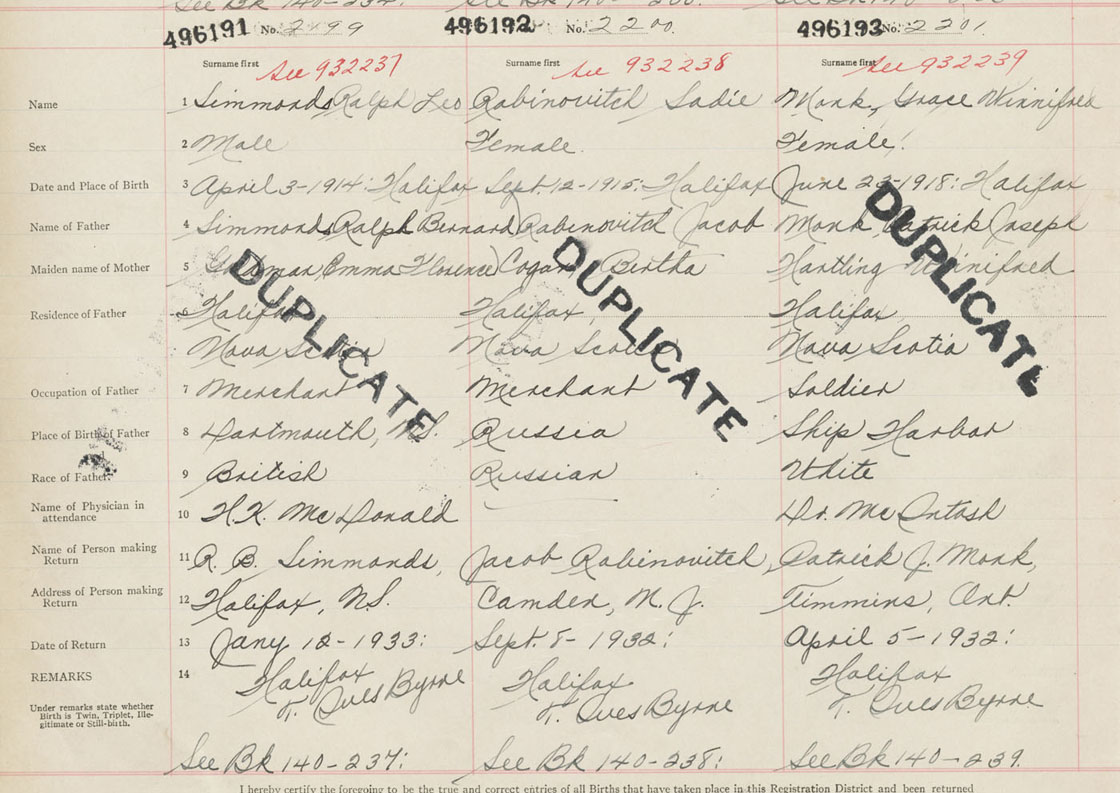 See Bk 140-234. See Bk 140- 200. See Bk 140
496191 No. 2199 496192 No. 2200. 496193 No. 2201.
Surname first See 932237 Surname first See 932238 Surname first See 932239
Name 1 Simmonds Ralph Leo Rabinovitch Sadie Monk, Grace Winnifred
Sex 2 Male Female. Female.
Date and Place of Birth 3 April 3-1914: Halifax Sept. 12-1915: Halifax June 23-1918: Halifax
Name of Father 4 Simmonds Ralph Bernard Rabinovitch Jacob Monk, Patrick Joseph
Maiden name of Mother 5 Emma Florence Cogan Bertha Hartling Winnifred
Residence of Father 6 Halifax Halifax, Halifax,
Nova Scotia Nova Scotia Nova Scotia
DUPLICATE DUPLICATE DUPLICATE
Occupation of Father 7 Merchant Merchant Soldier
Place of Birth of Father 8 Dartmouth, N.S. Russia Ship Harbor
Race of Father. 9 British Russian White
Name of Physician in
attendance 10 H.K. McDonald Dr. McIntosh
Name of Person making
Return 11 R. B. Simmonds, Jacob Rabinovitch, Patrick J. Monk,
Address of Person making
Return 12 Halifax, N.S. Camden, N. J. Timmins, Ont.
Date of Return 13 Jany 12-1933: Sept. 8-1932: April 5-1932:
REMARKS 14 Halifax Halifax Halifax
T. Ives Byrne T. Ives Byrne T. Ives Byrne
Under remarks state whether
Birth is Twin, Triplet, Ille-
gitimate or Still-birth.
See Bk 140-237: See Bk 140-238: See Bk 140-239.
I hereby certify the foregoing to be the true and correct entries of all Births that have taken place in this Registration District and been returned